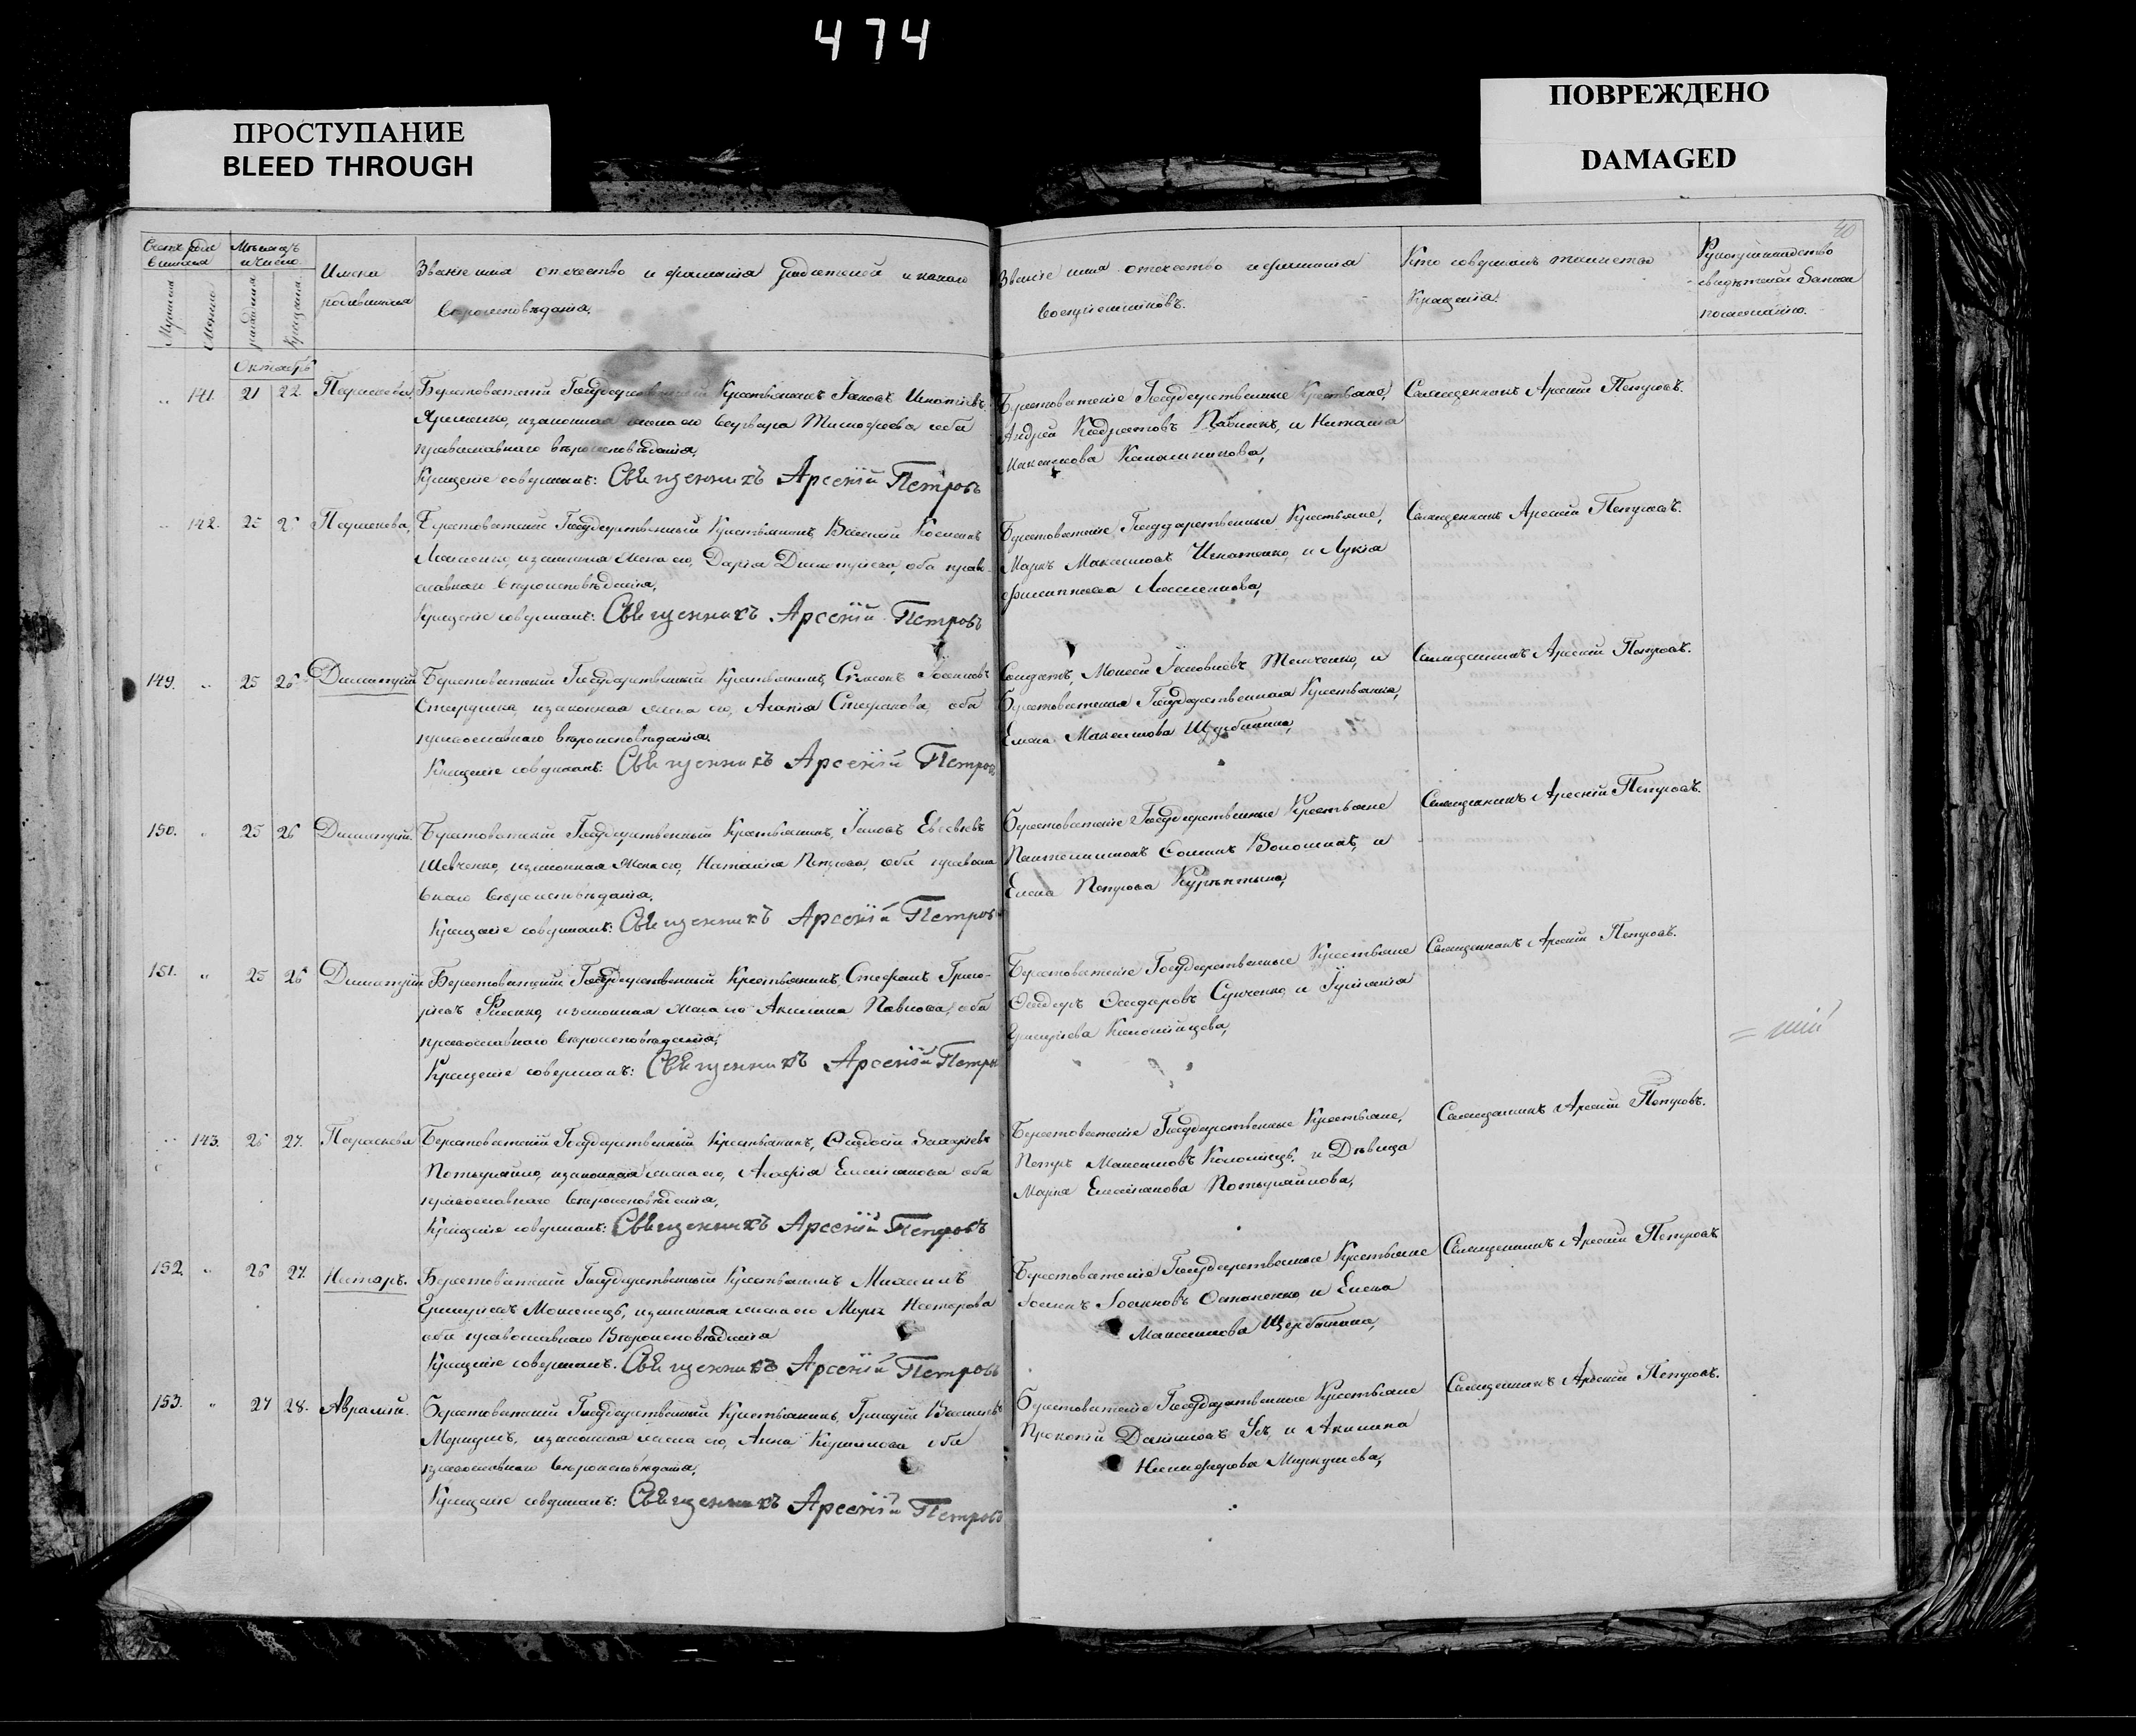 474
ПРОСТУПАНИЕ
BLEED THROUGH
ПОВРЕЖДЕНО
DAMAGED
40
Счетъ родившихся
Мѣсяцъ и число
Мужеска
Женска
рожденія
крещенія
Имена родившихся
Званіе имя отечество и фамилія родителей и какого
вѣроисповѣданія.
Званіе имя отечество и фамилія
воспріемниковъ.
Кто совершалъ таинство
Крещенія.
Рукоприкладство
свидѣтелей записи
по желанію.
Октябрь
141. 21 22 Параскева
Берестоватскій Государственный Крестьянинъ Іаковъ Игнатіевъ
Яременко, и законная жена его Варвара Тимофеева оба
православнаго вѣроисповѣданія,
Крещеніе совершалъ: Священникъ Арсеній Петровъ
Берестоватскіе Государственные Крестьяне,
Андрей и Наталія
Максимова Калашникова,
Священникъ Арсеній Петровъ.
142. 25 26 Параскева,
Берестоватскій Государственный Крестьянинъ Василій Косминъ
и законная жена его, Дарія Димитріева, оба право-
славнаго вѣроисповѣданія,
Крещеніе совершалъ: Священникъ Арсеній Петровъ
Берестоватскіе Государственные Крестьяне,
Маркъ Максимовъ Игнатенко, и Лукія
Филиппова
Священникъ Арсеній Петровъ.
149. 25 26 Димитрій
Берестоватскій Государственный Крестьянинъ, Симеонъ Іоанновъ
и законная жена его, Агапія Стефанова, оба
православнаго вѣроисповѣданія.
Крещеніе совершалъ: Священникъ Арсеній Петровъ
Солдатъ, Моисей Іаковлевъ Ткаченко, и
Берестоватская Государственная Крестьянка,
Елена Максимова Щербинина,
Священникъ Арсеній Петровъ.
150. 25 26 Димитрій.
Берестоватскій Государственный Крестьянинъ, Іаковъ Евсевіевъ
Шевченко, и законная жена его, Наталія Петрова, оба православ
внаго вѣроисповѣданія,
Крещеніе совершалъ: Священникъ Арсеній Петровъ
Берестоватскіе Государственные Крестьяне
Пантелеимонъ Волошинъ, и
Елена Петрова
Священникъ Арсеній Петровъ.
151. 25 26 Димитрій
Берестоватскій Государственный Крестьянинъ, Стефанъ Григо-
ріевъ и законная жена его Акилина Павлова, оба
православнаго вѣроисповѣданія,
Крещеніе совершалъ: Священникъ Арсеній Петровъ
Берестоватскіе Государственные Крестьяне
Ѳеодоръ Ѳеодоровъ и Іуліанія
Григоріева Коломійцева,
Священникъ Арсеній Петровъ.
143. 26 27. Параскева
Берестоватскій Государственный Крестьянинъ, Ѳеодосій
и законная жена его, Агафія Емеліанова оба
православнаго вѣроисповѣданія,
Крещеніе совершалъ: Священникъ Арсеній Петровъ
Берестоватскіе Государственные Крестьяне,
Петръ Максимовъ Коломіецъ, и Дѣвица
Марія Емеліанова
Священникъ Арсеній Петровъ.
152. 26 27. Несторъ.
Берестоватскій Государственный Крестьянинъ Михаилъ
Григоріевъ и законная жена его Нестерова
оба православнаго Вѣроисповѣданія
Крещеніе совершалъ. Священникъ Арсеній Петровъ
Берестоватскіе Государственные Крестьяне
Іоаннъ Іоанновъ Остапенко и Елена
Максимова Щербинина,
Священникъ Арсеній Петровъ
153. 27 28. Аврамій.
Берестоватскій Государственный Крестьянинъ, Григорій Василіевъ
и законная жена его, Анна оба
православнаго вѣроисповѣданія,
Крещеніе совершалъ: Священникъ Арсеній Петровъ
Берестоватскіе Государственные Крестьяне
Прокопій Даниловъ Усъ, и Акилина
Никифорова
Священникъ Арсеній Петровъ.